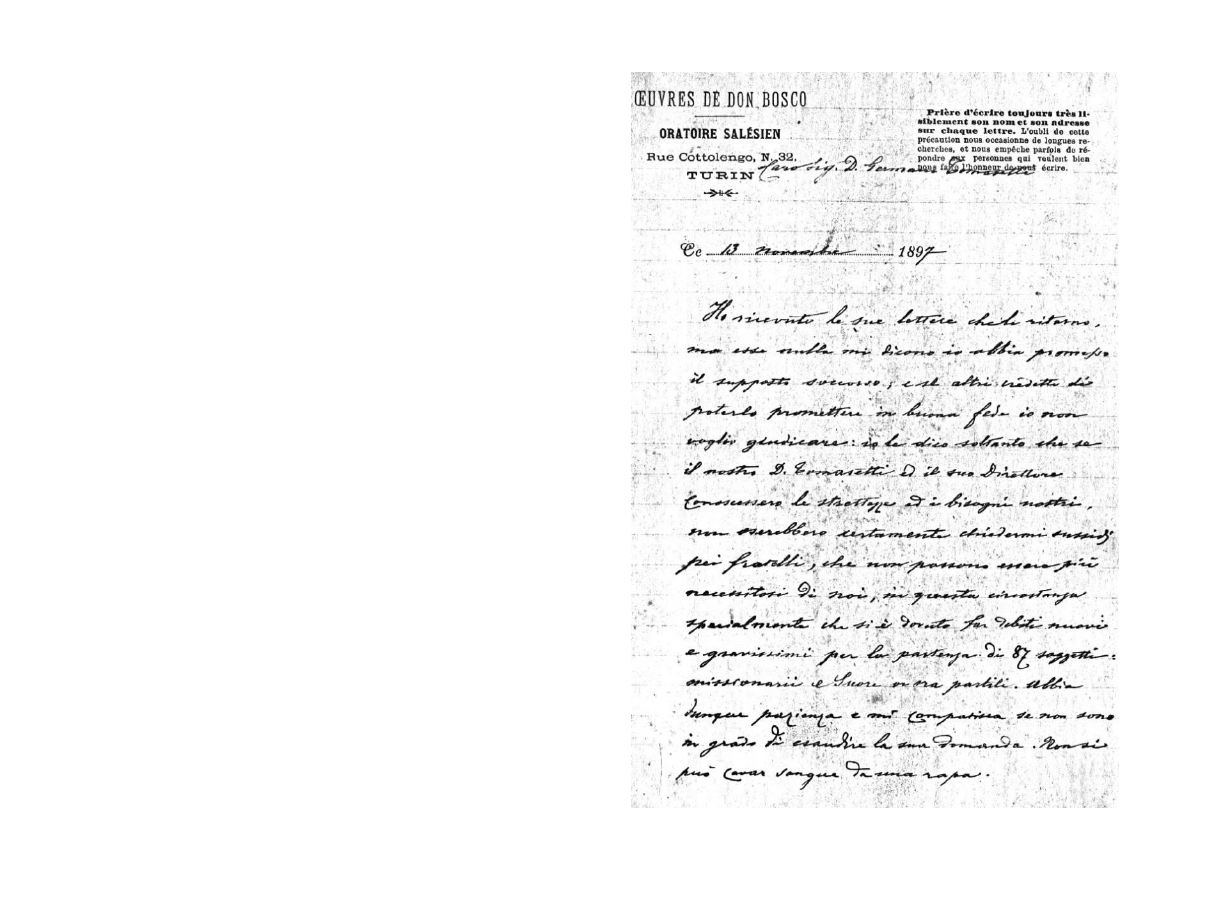 ŒUVRES DE DON BOSCO
ORATOIRE SALÉSIEN
Rue Cottolengo, N. 32.
TURIN
Prière d'écrire toujours très li-
siblement son nom et son adresse
sur chaque lettre. L'oubli de cette
précaution nous occasionne de longues re-
cherches, et nous empêche parfois de ré-
pondre aux personnes qui veulent bien
nous faire l'honneur de nous écrire.
Caro Sig. D. Germano Tomasetti
Ce 13 novembre 1897
Ho ricevuto le sue lettere che le ritorno,
ma esse nulla mi dicono io abbia promesso
il supposto soccorso; e se altri credette di
poterlo promettere in buona fede io non
voglio giudicare: io le dico soltanto che se
il nostro D. Tomasetti ed il suo Direttore
conoscessero le strettezze ed i bisogni nostri,
non oserebbero certamente chiedermi sussidj
pei fratelli, che non possono essere più
necessitosi di noi, in questa circostanza
specialmente che si è dovuto far debiti nuovi
e gravissimi per la partenza di 87 soggetti:
missionarii e Suore or ora partiti. Abbia
dunque pazienza e mi compatisca se non sono
in grado di esaudire la sua domanda. Non si
può cavar sangue da una rapa.